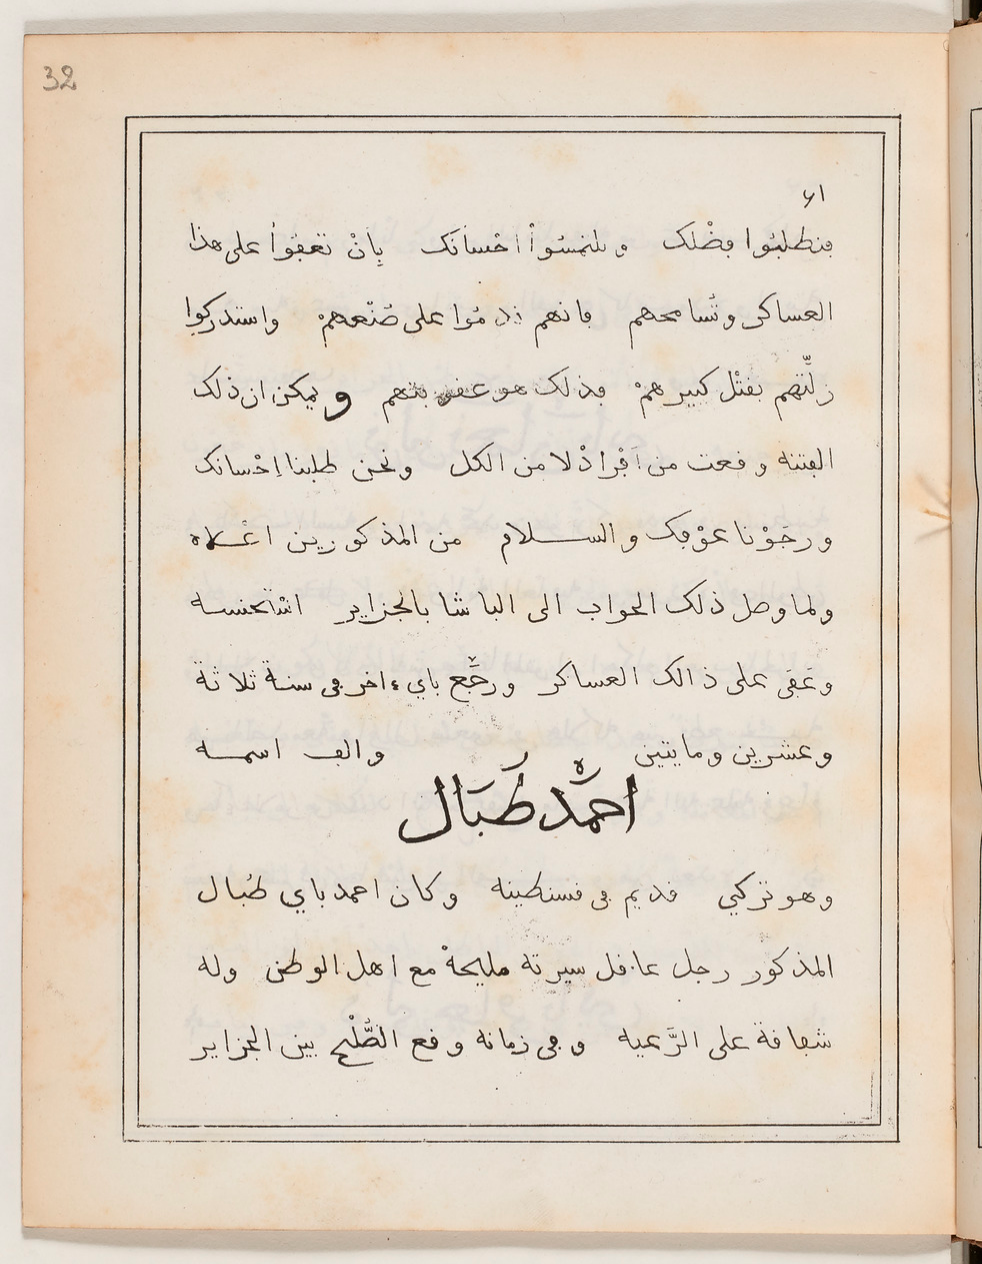 32
٦١
فنطلبوا فضْلك ونلتمسُواْ احْسانَك بِانْ تعفواْ على هذا
العساكر وتُسامحهم فانهم ندمُوا على صُنْعهمْ واستدركوا
زلَّتهم بقتْل كبيرهمْ فذلك هو عقوبتهم ويمكن ان ذلك
الفتنه وقعت من اَفْرادْ لا من الكل ونحن طلبنا اِحْسانك
ورجَوْنا عوْفك والسلام من المذكورين اعْلاه
ولما وصل ذلك الجواب الى الباشا بالجزاير اسْتحسنه
وعفى على ذالك العساكر ورجَّع باي ءاخر في سنة ثلاثة
وعشرين ومايتين والف اسمه
احمَّد طُبَال
وهو تركي قديم في قسنطينه وكان احمد باي طُبال
المذكور رجل عاقل سيرته مليحةْ مع اهل الوطن وله
شفافة على الرَّعيه وفي زمانه وقع الصُّلْح بين الجزاير